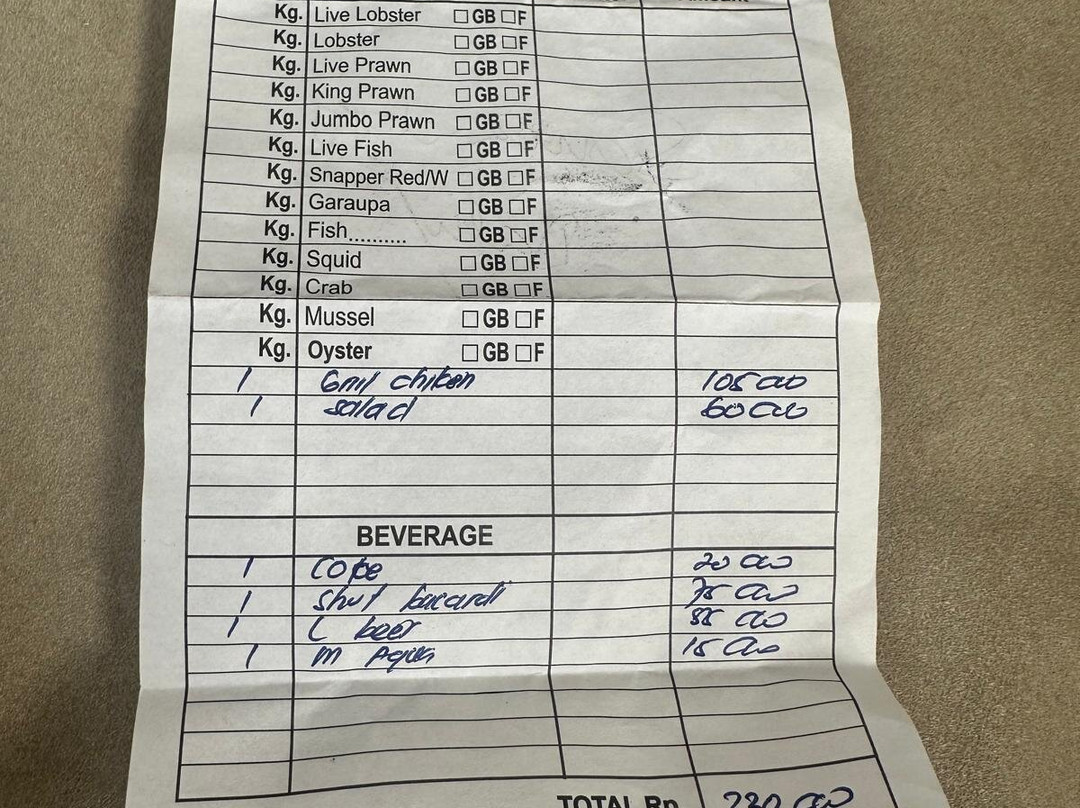 Kg. Live Lobster □ GB □ F
Kg. Lobster □ GB □ F
Kg. Live Prawn □ GB □ F
Kg. King Prawn □ GB □ F
Kg. Jumbo Prawn □ GB □ F
Kg. Live Fish □ GB □ F
Kg. Snapper Red/W □ GB □ F
Kg. Garaupa □ GB □ F
Kg. Fish.......... □ GB □ F
Kg. Squid □ GB □ F
Kg. Crab □ GB □ F
Kg. Mussel □ GB □ F
Kg. Oyster □ GB □ F
1 Gril chiken 105 000
1 salad 60 000
BEVERAGE
1 Coke 20 000
1 Shut bacardi 75 000
1 L beer 55 000
1 M Aqua 15 000
TOTAL Rp